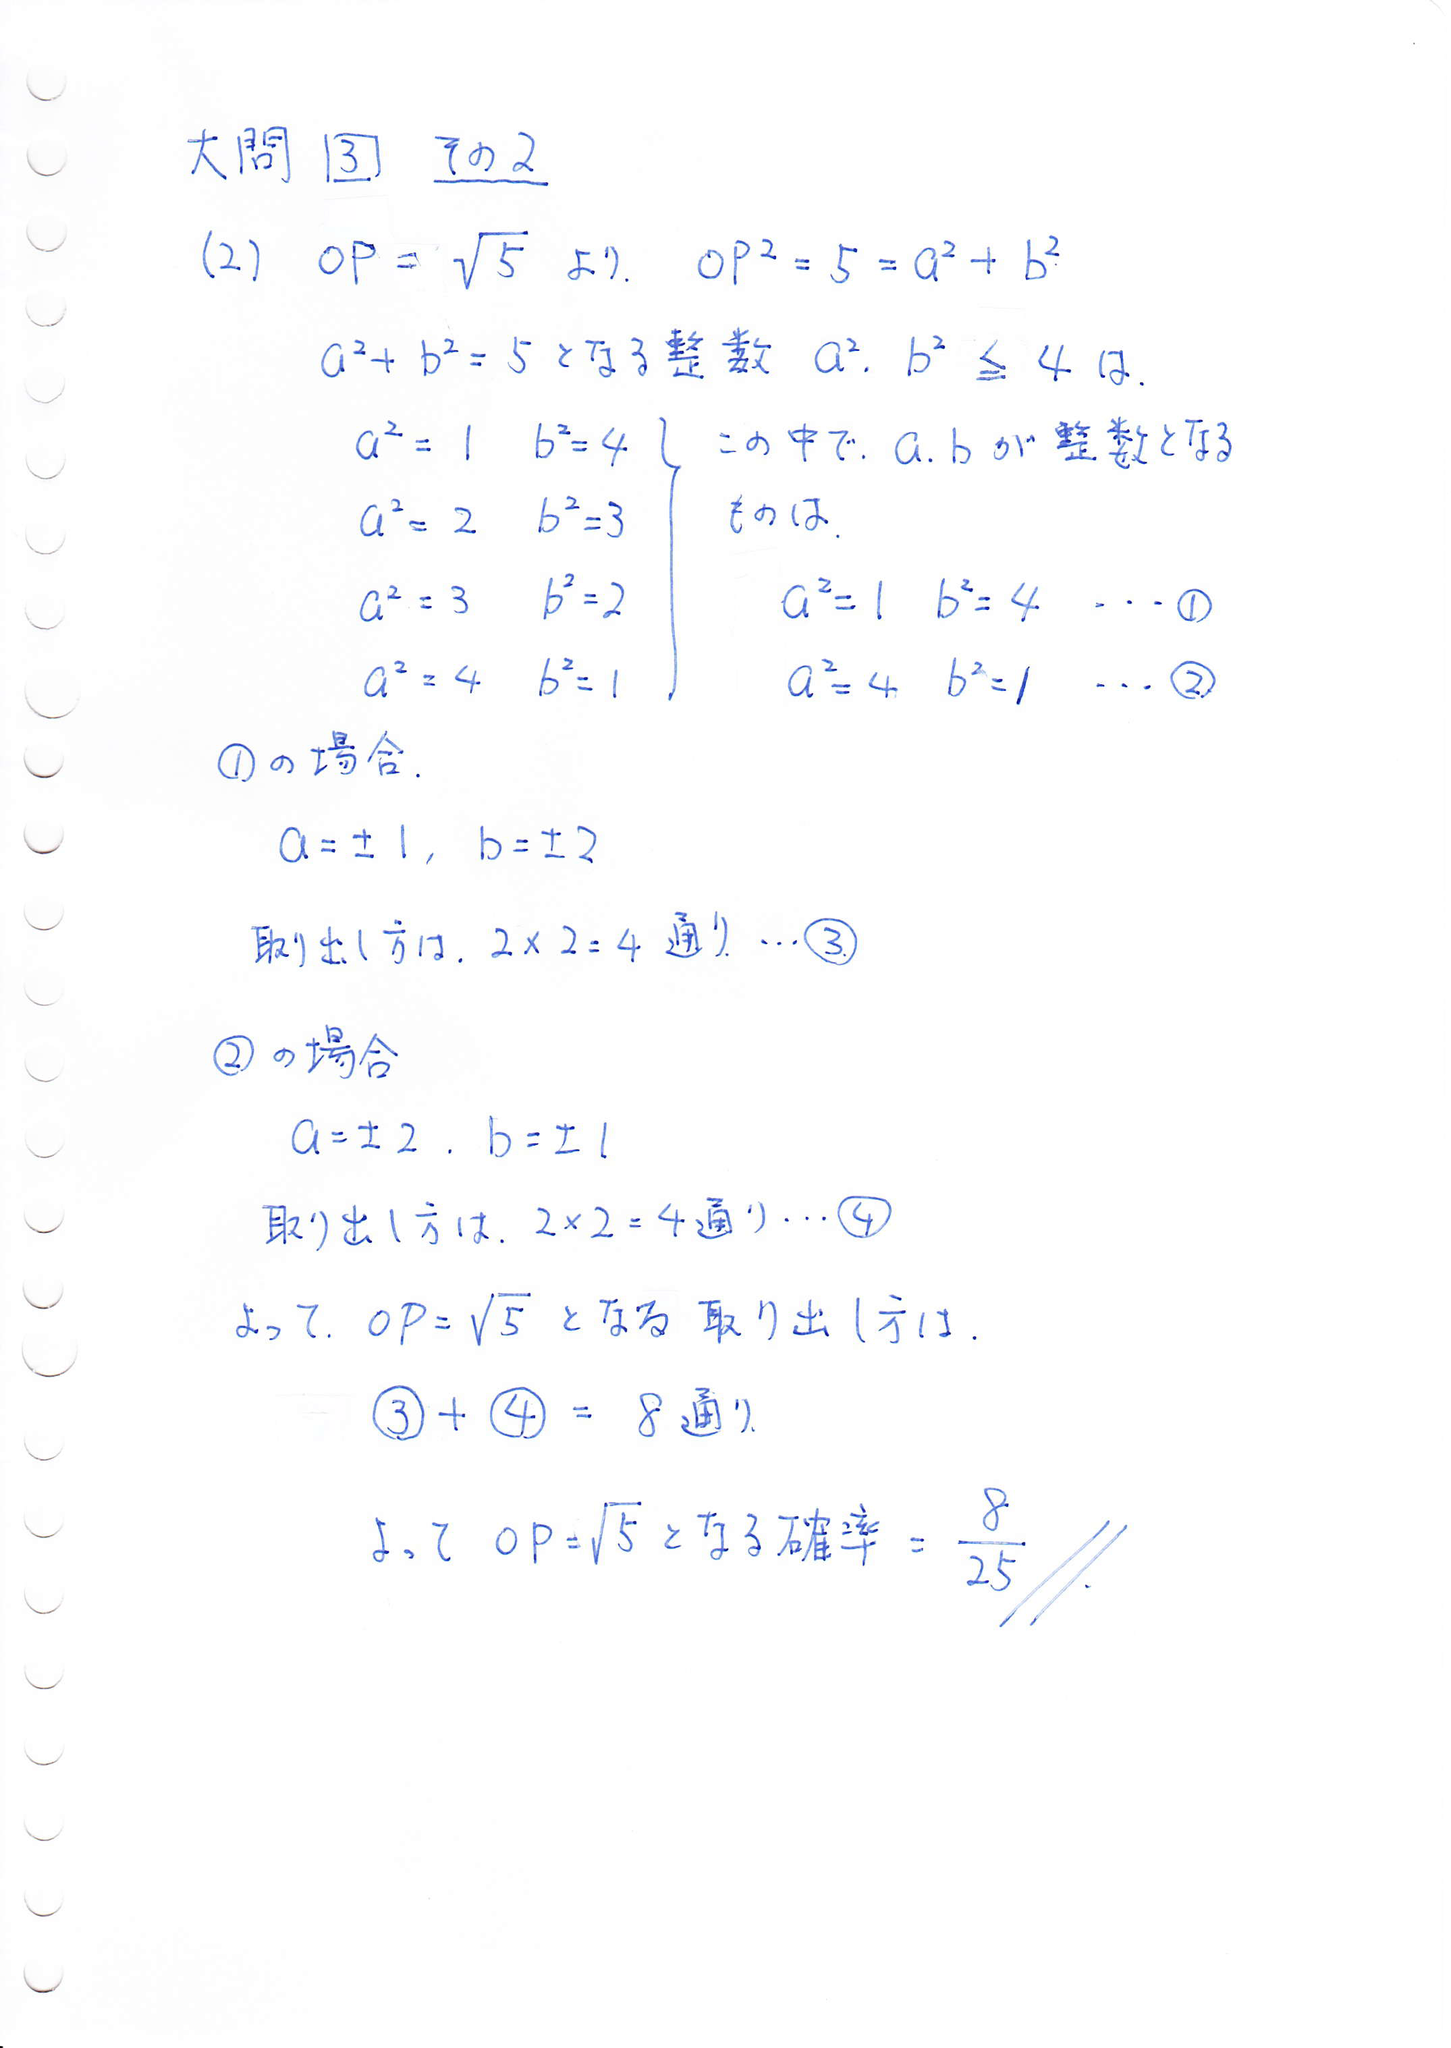 大問 3 その2
(2) OP = √5 より. OP² = 5 = a² + b²
a² + b² = 5 となる整数 a². b² ≦ 4 は.
a² = 1 b² = 4
a² = 2 b² = 3
a² = 3 b² = 2
a² = 4 b² = 1
この中で. a. b が整数となる
ものは.
a² = 1 b² = 4 ・・・①
a² = 4 b² = 1 ・・・②
①の場合.
a = ±1, b = ±2
取り出し方は. 2×2 = 4 通り ・・・③
②の場合
a = ±2. b = ±1
取り出し方は. 2×2 = 4通り ・・・④
よって. OP = √5 となる 取り出し方は.
③ + ④ = 8 通り
よって OP = √5 となる確率 = 8/25 //.